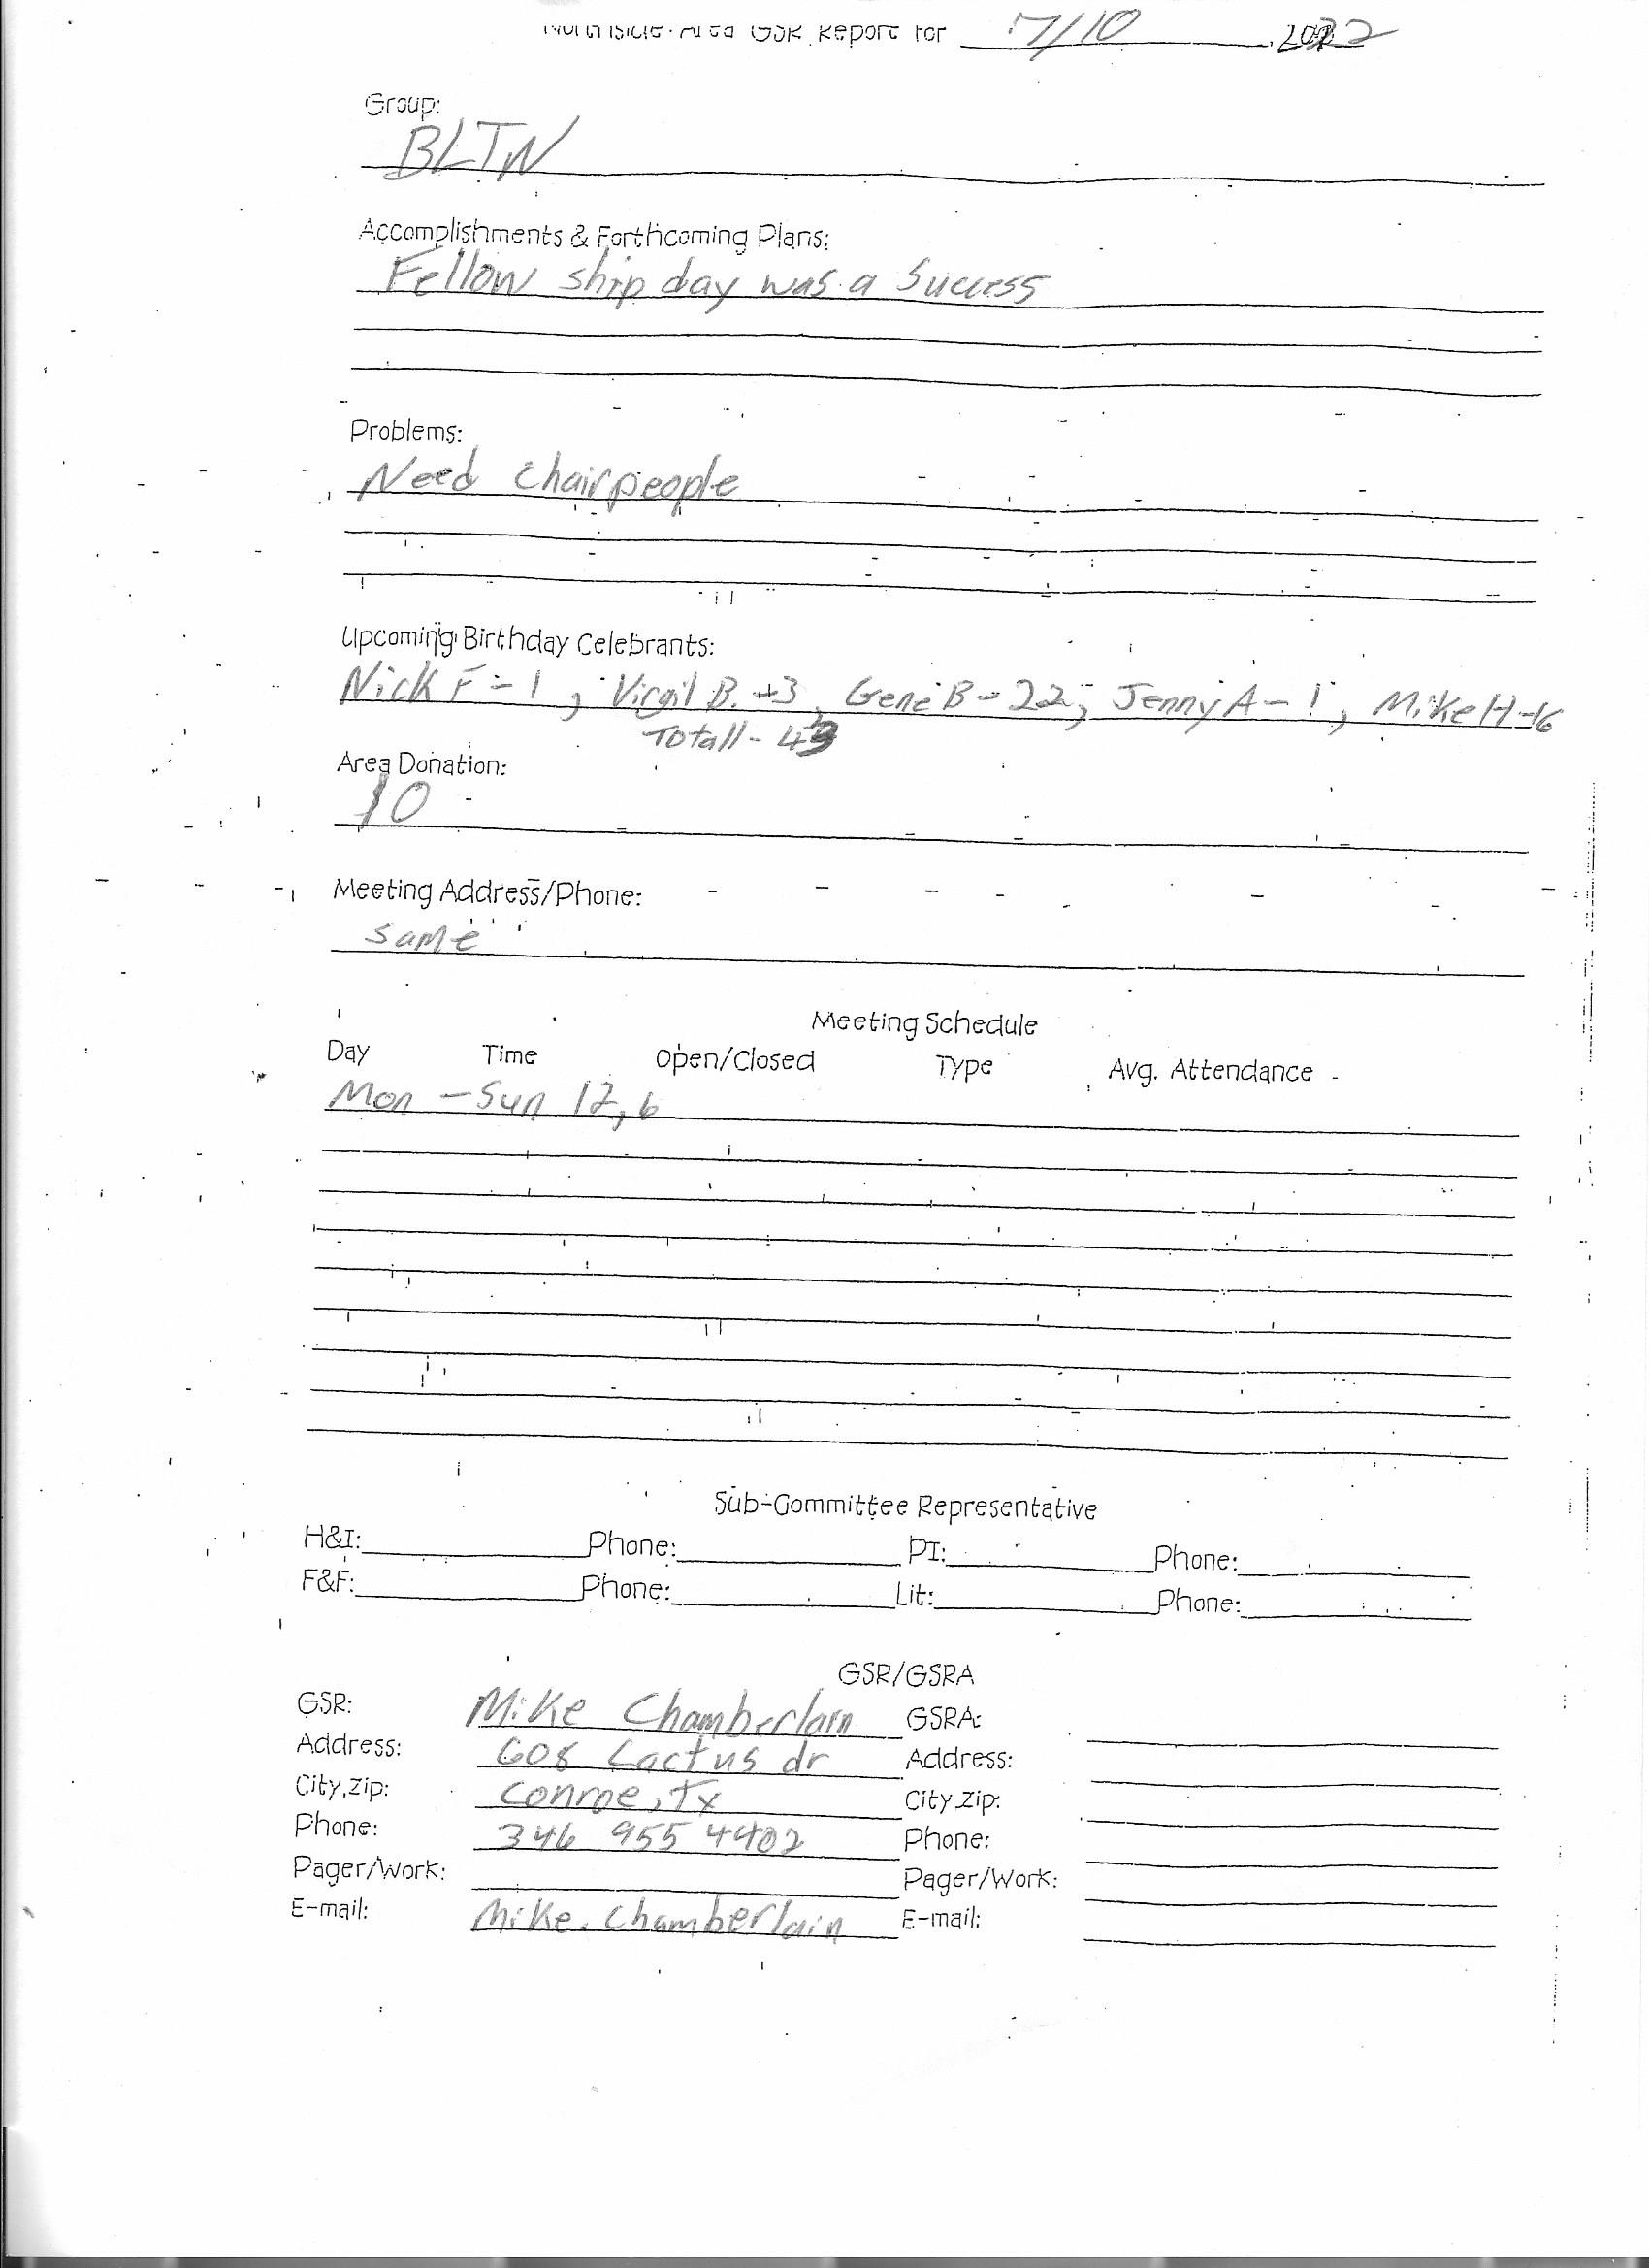 Area GSR Report for 7/10, 2022
Group:
BLTN
Accomplishments & Forthcoming Plans:
Fellow ship day was a Success
Problems:
Need Chairpeople
Upcoming Birthday Celebrants:
Nick F - 1, Virgil B. - 3, Gene B - 22, Jenny A - 1, Mike H - 16
Totall - 43
Area Donation:
10
Meeting Address/Phone:
Same
Meeting Schedule
Day Time Open/Closed Type Avg. Attendance
Mon - Sun 12, 6
Sub-Committee Representative
H&I: Phone: PI: Phone:
F&F: Phone: Lit: Phone:
GSR/GSRA
GSR: Mike Chamberlain GSRA:
Address: 608 Cactus dr Address:
City,zip: Conroe, Tx City,zip:
Phone: 346 955 4402 Phone:
Pager/Work: Pager/Work:
E-mail: Mike.Chamberlain E-mail: